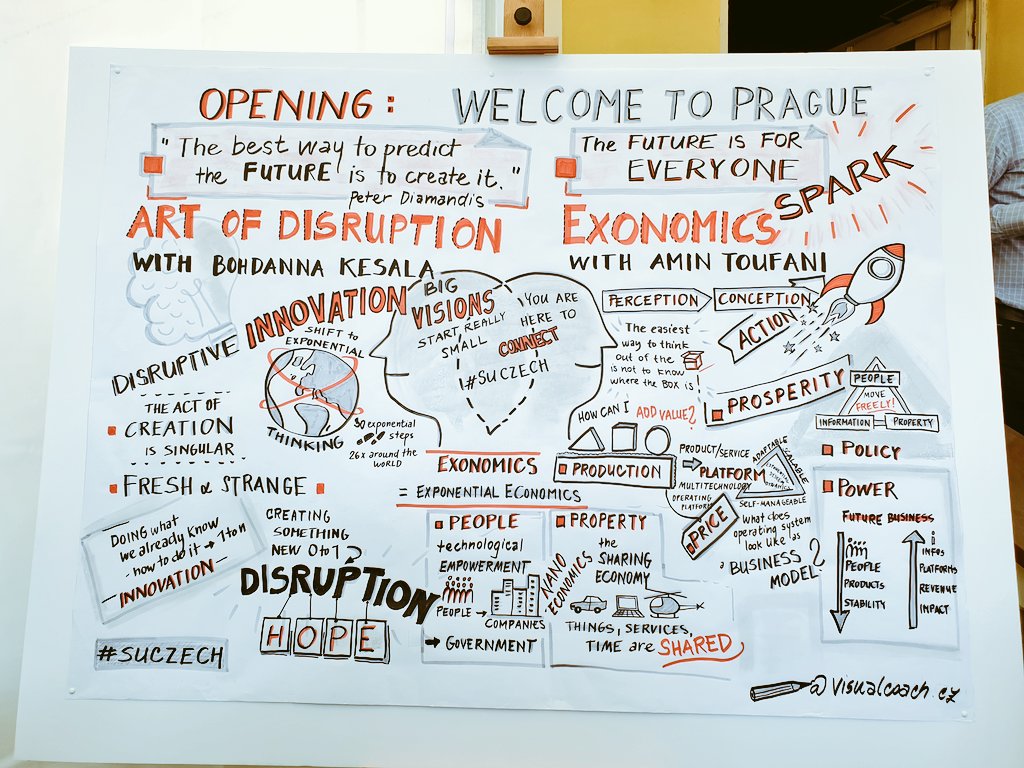 OPENING: WELCOME TO PRAGUE
"The best way to predict
the FUTURE is to create it."
Peter Diamandis
The FUTURE IS FOR
EVERYONE
SPARK
ART OF DISRUPTION
WITH BOHDANNA KESALA
EXONOMICS
WITH AMIN TOUFANI
DISRUPTIVE INNOVATION
THE ACT OF
CREATION
IS SINGULAR
FRESH & STRANGE
SHIFT to
EXPONENTIAL
THINKING
30 exponential
steps
26x around the
WORLD
BIG
VISIONS
START REALLY
SMALL
YOU ARE
HERE TO
CONNECT
#SUCZECH
DOING what
we already know
- how to do it → 1 to n
INNOVATION
CREATING
SOMETHING
NEW 0 to 1?
DISRUPTION
HOPE
#SUCZECH
PERCEPTION
CONCEPTION
ACTION
The easiest
way to think
out of the
is not to know
where the BOX is!
HOW CAN I ADD VALUE?
PROSPERITY
PEOPLE
MOVE
FREELY!
INFORMATION
PROPERTY
EXONOMICS
= EXPONENTIAL ECONOMICS
PRODUCTION
PRODUCT/SERVICE
→ PLATFORM
MULTITECHNOLOGY
OPERATING
PLATFORM
ADAPTABLE
SCALABLE
SELF-MANAGEABLE
PRICE
What does
operating system
look like as
a BUSINESS
MODEL?
PEOPLE
technological
EMPOWERMENT
PEOPLE →
COMPANIES
→ GOVERNMENT
PROPERTY
the
SHARING
ECONOMY
NANO
ECONOMICS
THINGS, SERVICES,
TIME are SHARED
POLICY
POWER
FUTURE BUSINESS
PEOPLE
PRODUCTS
STABILITY
INFOS
PLATFORMS
REVENUE
IMPACT
@visualcoach.cz